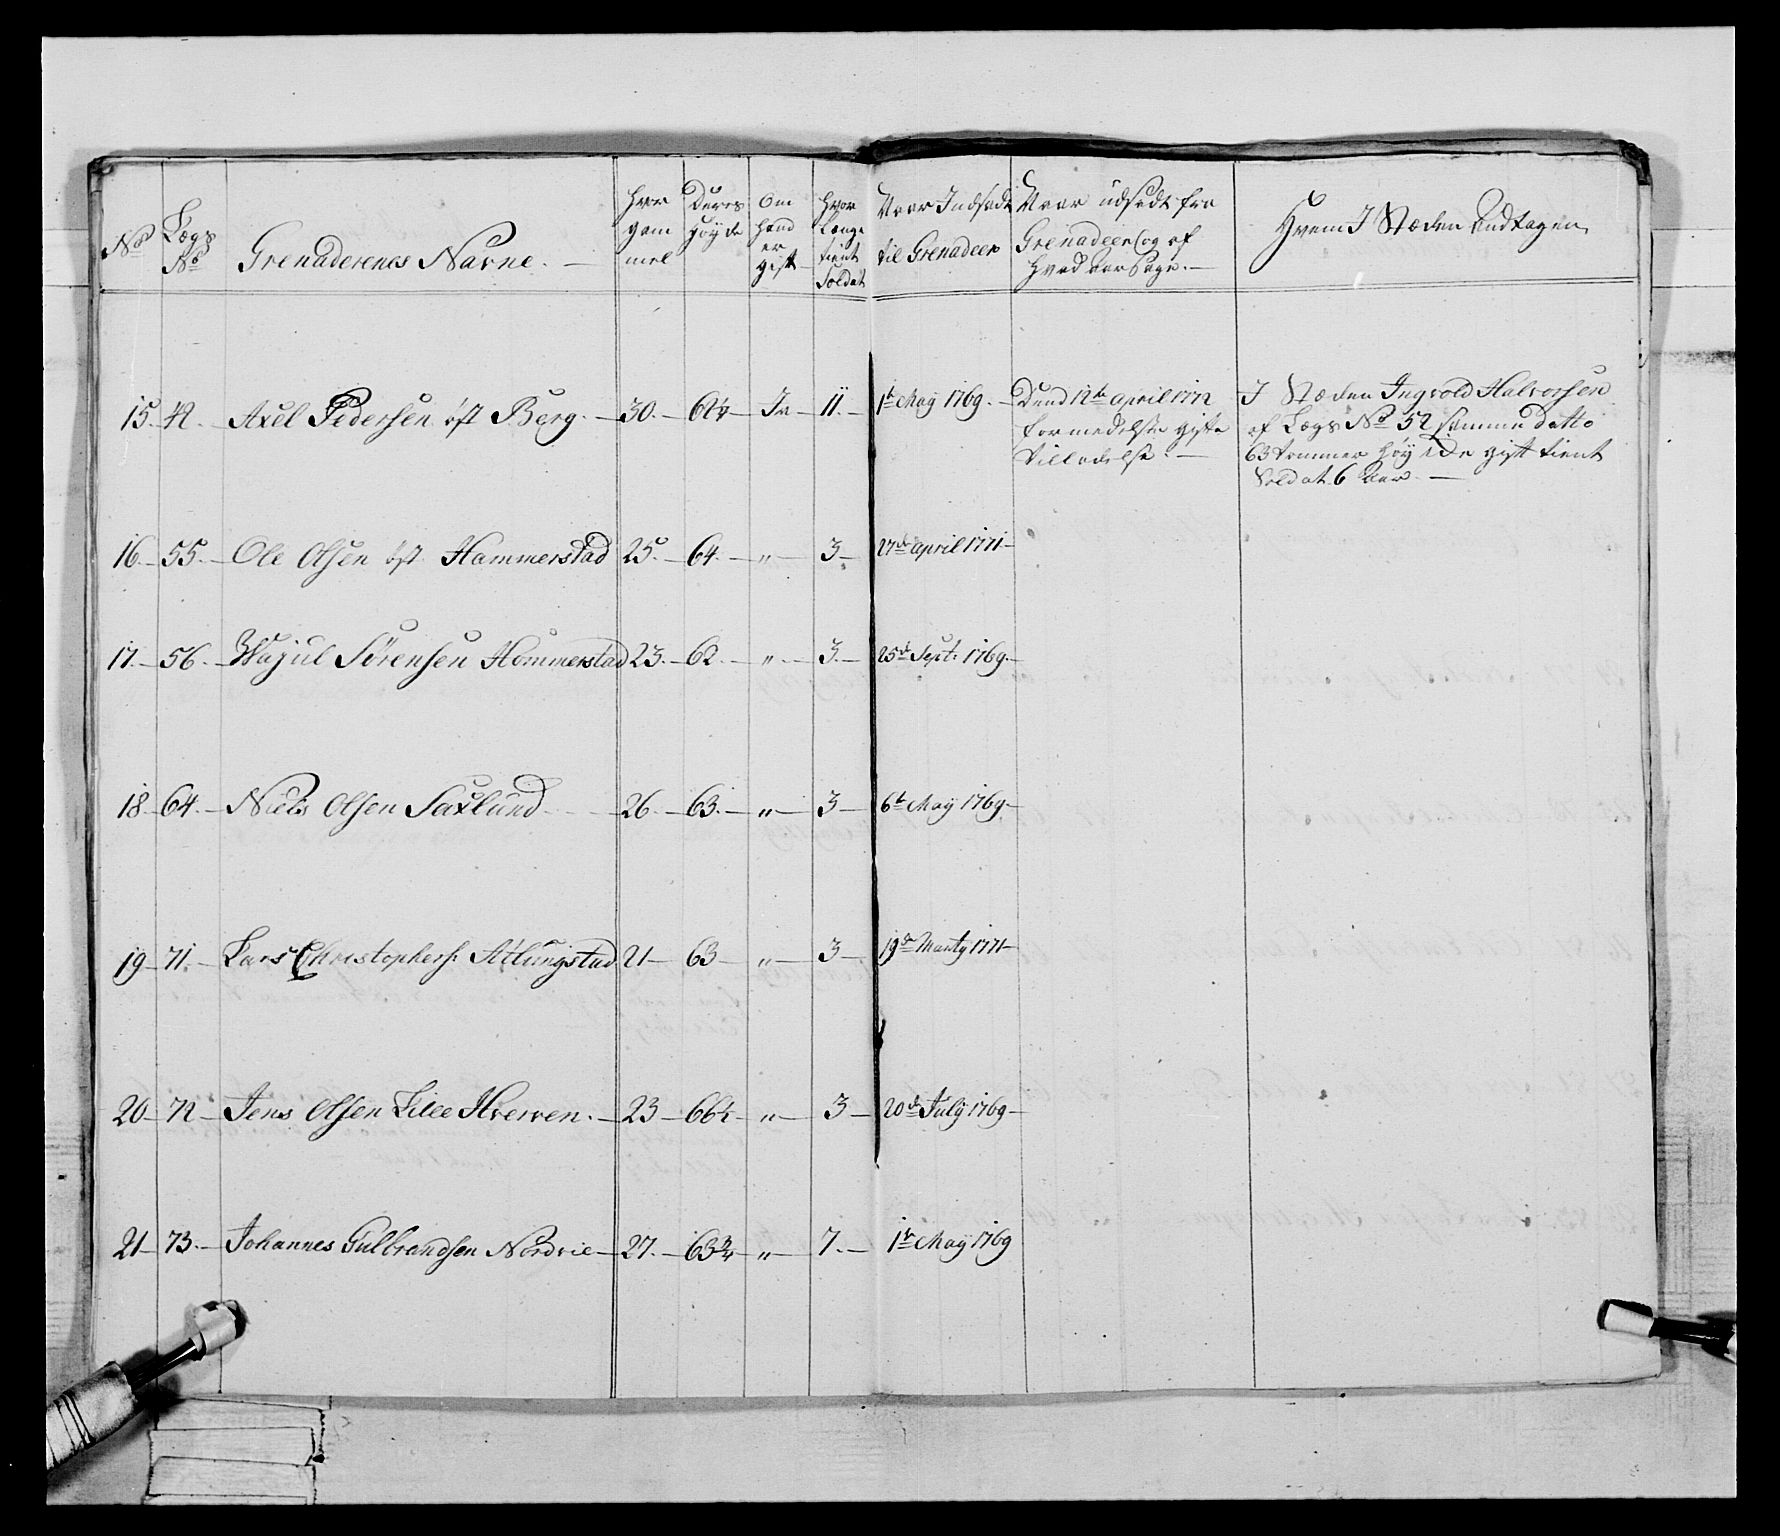 No
Lægs No
Grenaderenes Navne. —
Hvor gam mel
Deres Høyde
Om Hand er gift
Hvor Længe tient Soldat
Naar Indsadt til Grenadeer
Naar udsadt fra Grenadeer og af Hvad aarsage. —
Hvem I Stæden andtagen
15. 42. Axel Pedersen öst Berg. — 30. — 62¼ — Ja — 11. — 1te May 1769. — Dend 12te april 1772
formedelst gifte
tilladelse. —
I Stæden Ingvold Halvorsen
af Lægs No 52 samme datto
63 tommer høy ide gift tient
Soldat 6 Aar. —
16. — 55. — Ole Olsen öst Hammerstad 25. — 64. — " — 3 — 27de april 1771 —
17. — 56. — Wagiul Sørensen Hommerstad 23. — 62. — " — 3. — 25de Sept: 1769. —
18 — 64. — Niels Olsen Saxlund — 26. — 63. — " — 3 — 6te May 1769. —
19 — 71. — Lars Christophers: Atlungstad 21 — 63 — " — 3 — 19de Marty 1771 —
20 — 72 — Jens Olsen Lilee Hverven. — 23 — 66½ — " — 3 — 20de July 1769 —
21 — 73. — Johannes Gulbrandsen Nordvie — 27. — 63¾ — " — 7. — 1te May 1769